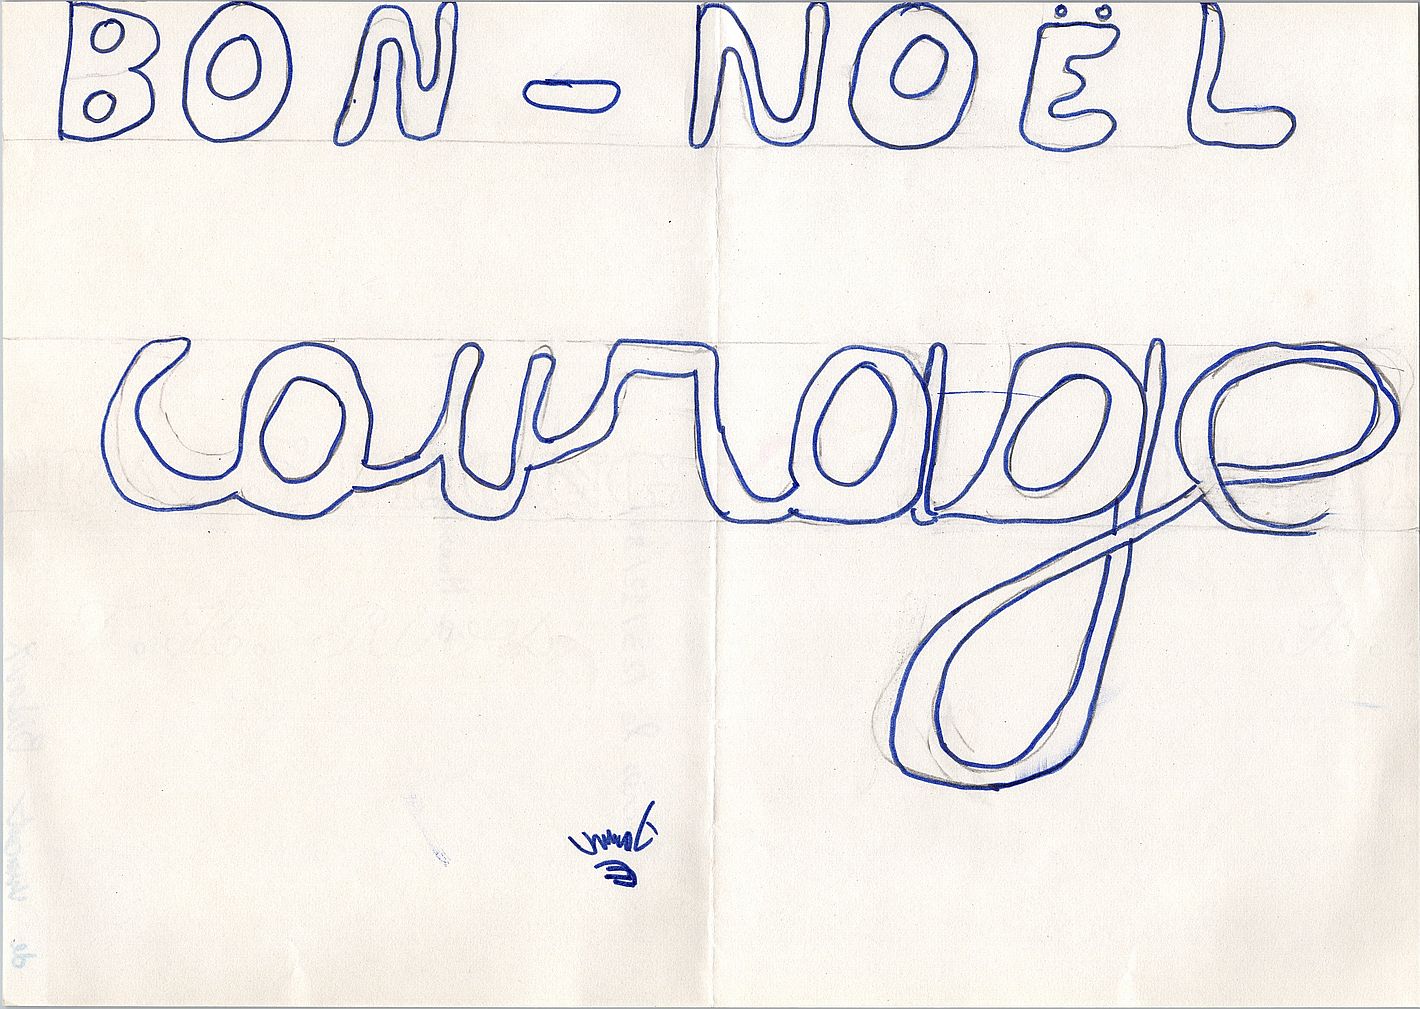 BON - NOËL
courage